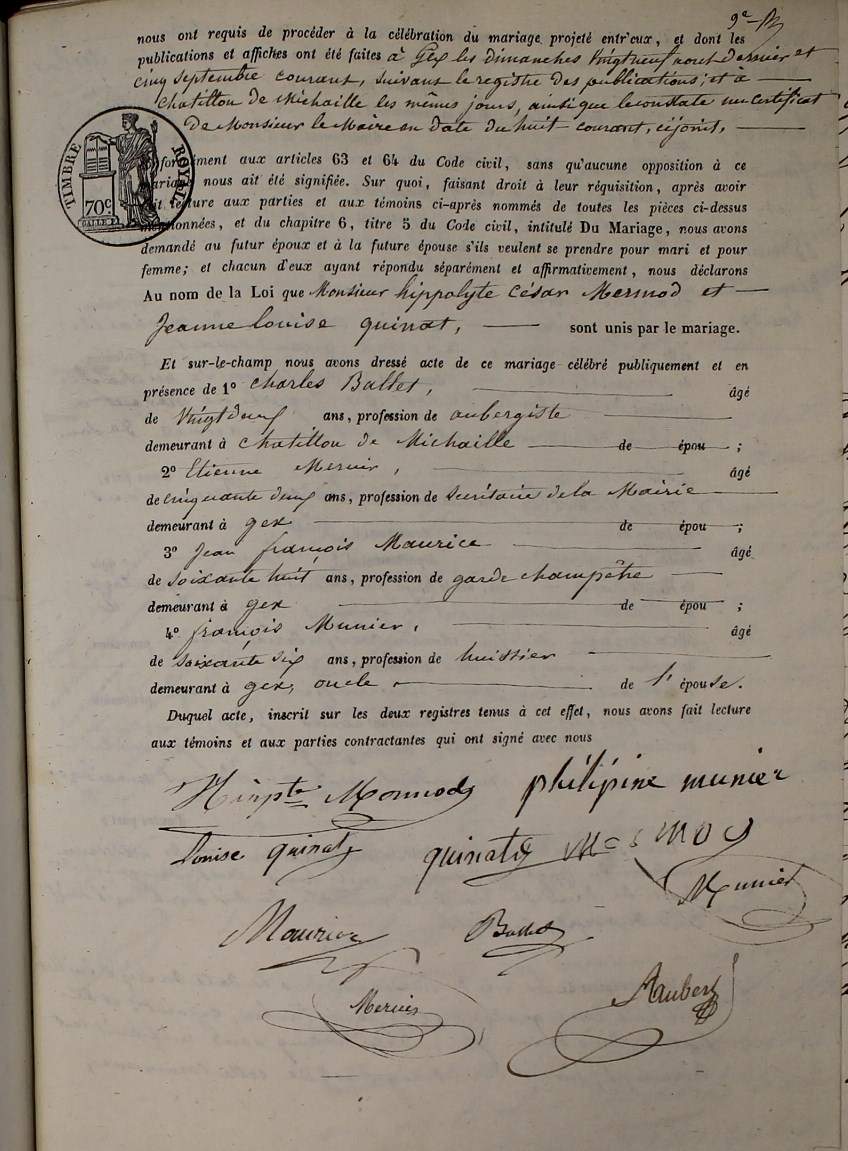 9e
nous ont requis de procéder à la célébration du mariage projeté entr'eux, et dont les
publications et affiches ont été faites à Gex les dimanches vingtneuf aout dernier et
cinq septembre courant, suivant le registre des publications; et à
chatillon de Michaille les mêmes jours, ainsi que le constate un certificat
de Monsieur le Maire en date du huit courant, cijoint,
TIMBRE ROYAL
70c
formément aux articles 63 et 64 du Code civil, sans qu'aucune opposition à ce
mariage nous ait été signifiée. Sur quoi, faisant droit à leur réquisition, après avoir
fait lecture aux parties et aux témoins ci-après nommés de toutes les pièces ci-dessus
mentionnées, et du chapitre 6, titre 5 du Code civil, intitulé Du Mariage, nous avons
demandé au futur époux et à la future épouse s'ils veulent se prendre pour mari et pour
femme; et chacun d'eux ayant répondu séparément et affirmativement, nous déclarons
Au nom de la Loi que Monsieur hippolyte césar Mermod et
Jeanne louise quinat, sont unis par le mariage.
Et sur-le-champ nous avons dressé acte de ce mariage célébré publiquement et en
présence de 1º Charles Ballet, âgé
de vingtdeux ans, profession de aubergiste
demeurant à chatillon de Michaille de épou ;
2º Etienne Mercier, âgé
de cinquante deux ans, profession de secrétaire de la Mairie
demeurant à gex de épou ;
3º Jean françois Maurice âgé
de soixante huit ans, profession de garde champêtre
demeurant à gex de épou ;
4º françois Munier, âgé
de soixante six ans, profession de huissier
demeurant à gex, oncle de l'épouse.
Duquel acte, inscrit sur les deux registres tenus à cet effet, nous avons fait lecture
aux témoins et aux parties contractantes qui ont signé avec nous
philipine munier
Louise quinat quinat
Munier
Maurice Ballet
Mercier Aubert